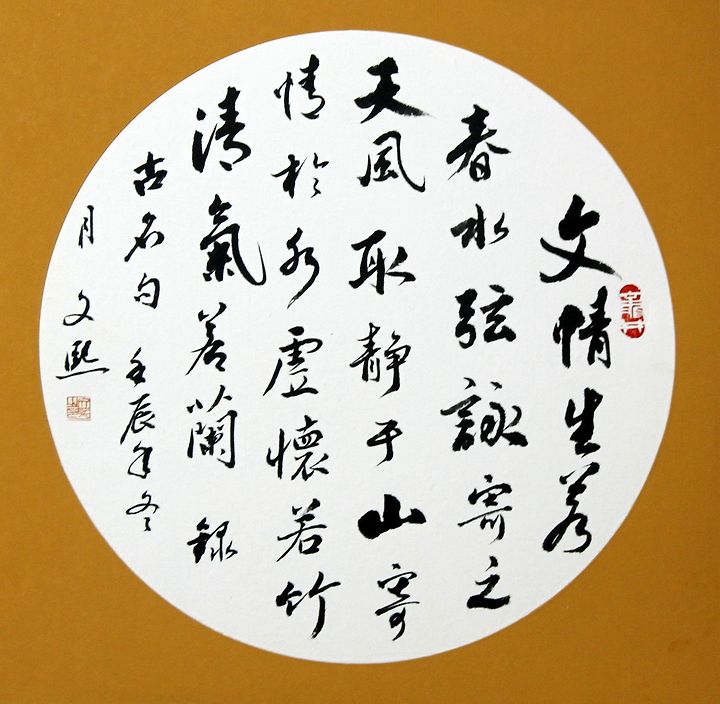 文情生若
春水弦詠寄之
天風取静于山寄
情於水虚懷若竹
清氣若蘭 録
古名句 壬辰年冬
月 文熙